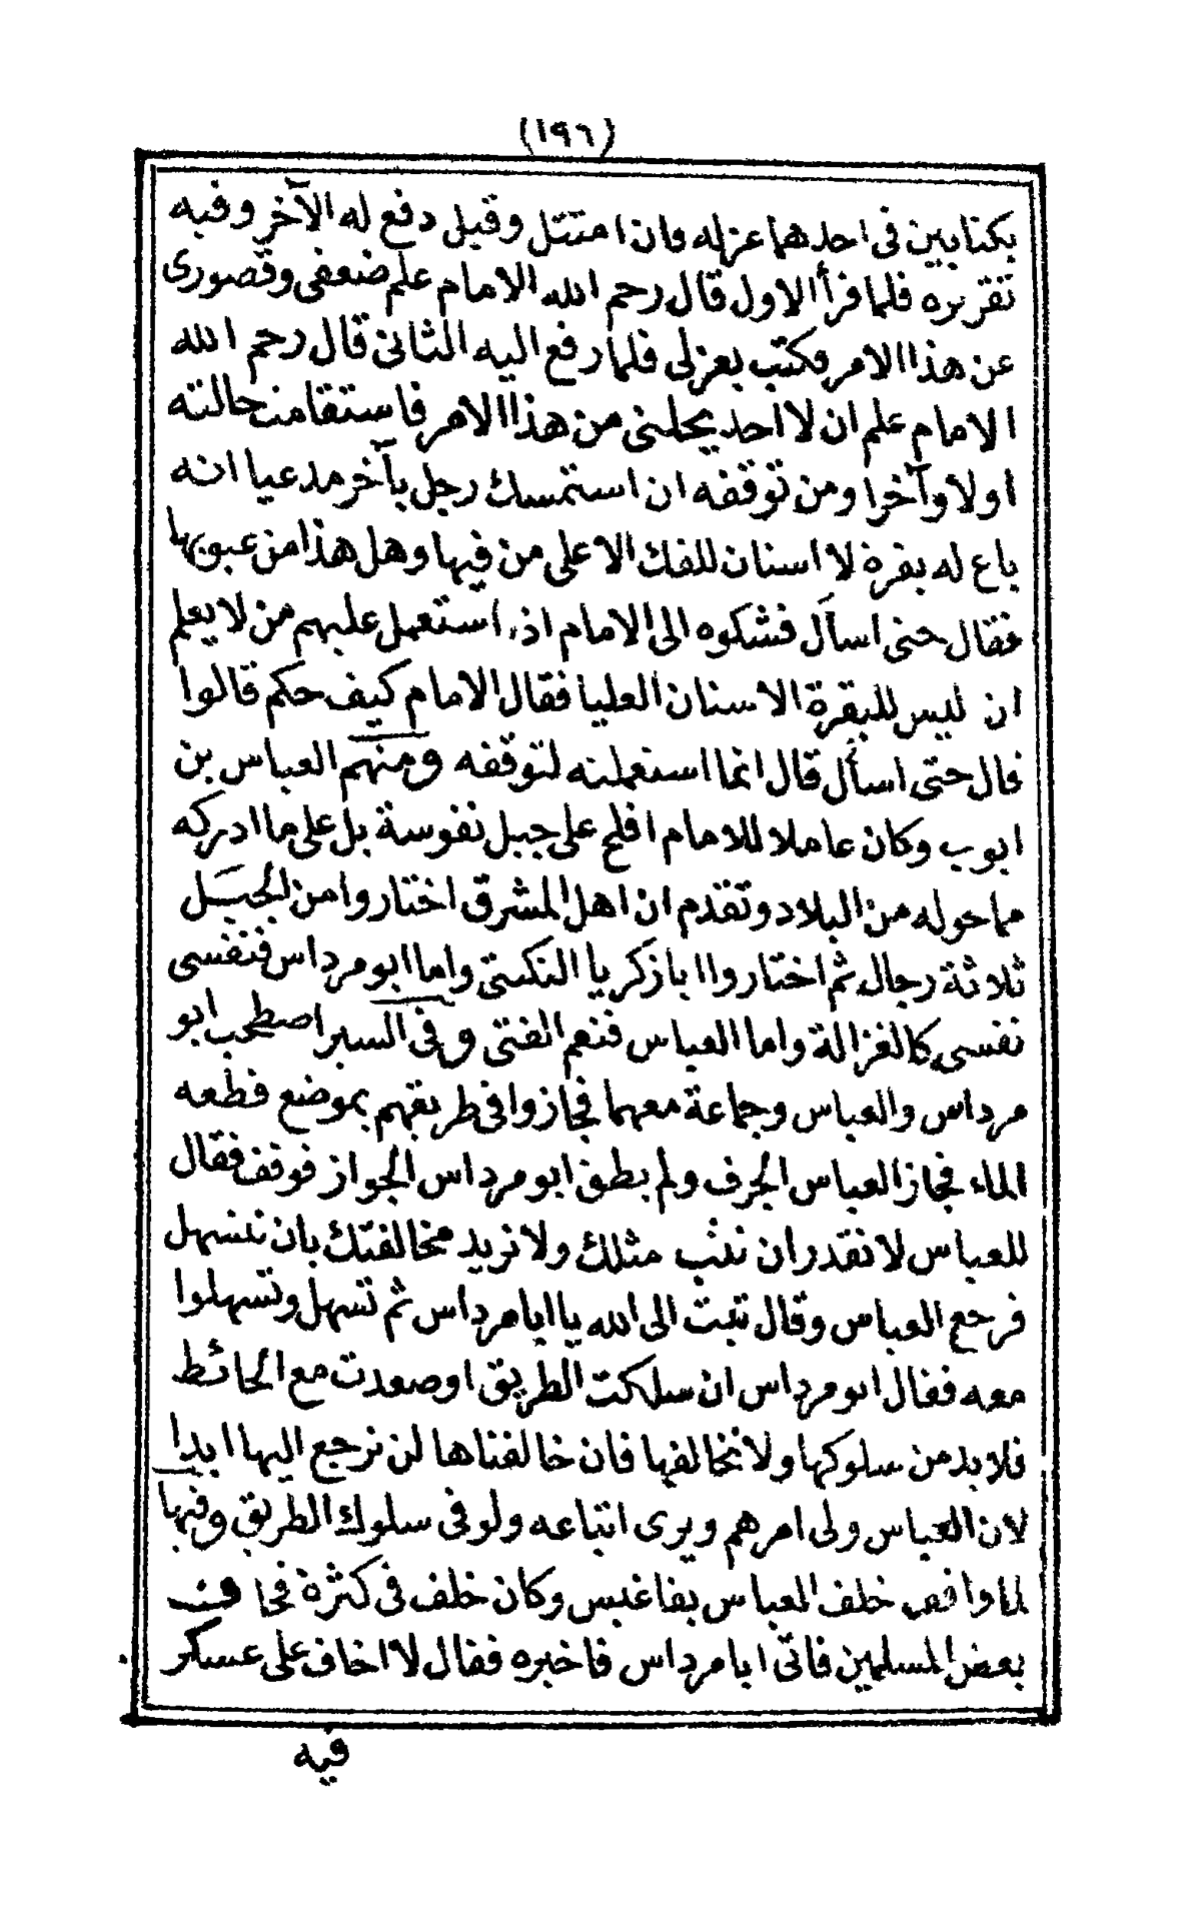 (١٩٦)
بكتابين فى احدهما عزله فان امتثل وقبل دفع له الآخر وفيه
تقريره فلما قرأ الاول قال رحم الله الامام علم ضعفى وقصورى
عن هذا الامر فكتب بعزلى فلما رفع اليه الثانى قال رحم الله
الامام علم ان لا احد يحملنى من هذا الامر فاستقامت حالته
اولا وآخرا ومن توقفه ان استمسك رجل بآخر مدعيا انه
باع له بقرة لا اسنان للفك الاعلى من فيها وهل هذا من عيوبها
فقال حتى اسأل فشكوه الى الامام اذ استعمل عليهم من لا يعلم
ان ليس للبقرة الاسنان العليا فقال الامام كيف حكم قالوا
قال حتى اسأل قال انما استعملته لتوقفه ومنهم العباس بن
ايوب وكان عاملا للامام افلح على جبل نفوسة بل على ما ادركه
مما حوله من البلاد وتقدم ان اهل المشرق اختاروا من الجبل
ثلاثة رجال ثم اختاروا ابا زكريا التكستى واما ابو مرداس فنفسى
نفسى كالغزالة واما العباس فنعم الفتى وفى السير اصطحب ابو
مرداس والعباس وجماعة معهما فجازوا فى طريقهم بموضع قطعه
الماء فجاز العباس الجرف ولم يطق ابو مرداس الجواز فوقف فقال
للعباس لا نقدر ان نثب مثلك ولا نريد مخالفتك بان نتسهل
فرجع العباس وقال تبت الى الله يا ابا مرداس ثم تسهل وتسهلوا
معه فقال ابو مرداس ان سلكت الطريق او صعدت مع الحائط
فلا بد من سلوكها ولا نخالفها فان خالفناها لن نرجع اليها ابدا
لان العباس ولى امرهم ويرى اتباعه ولو فى سلوك الطريق وفيها
لما واقف خلف العباس بفاغيس وكان خلف فى كثرة فخافت
بعض المسلمين فاتى ابا مرداس فاخبره فقال لا اخاف على عسكر
فيه